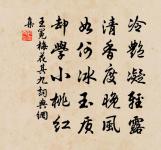 冷艷凝輕露
清香度晚風
如何冰玉質
却學小桃紅
王冕梅花其九詞典網
集